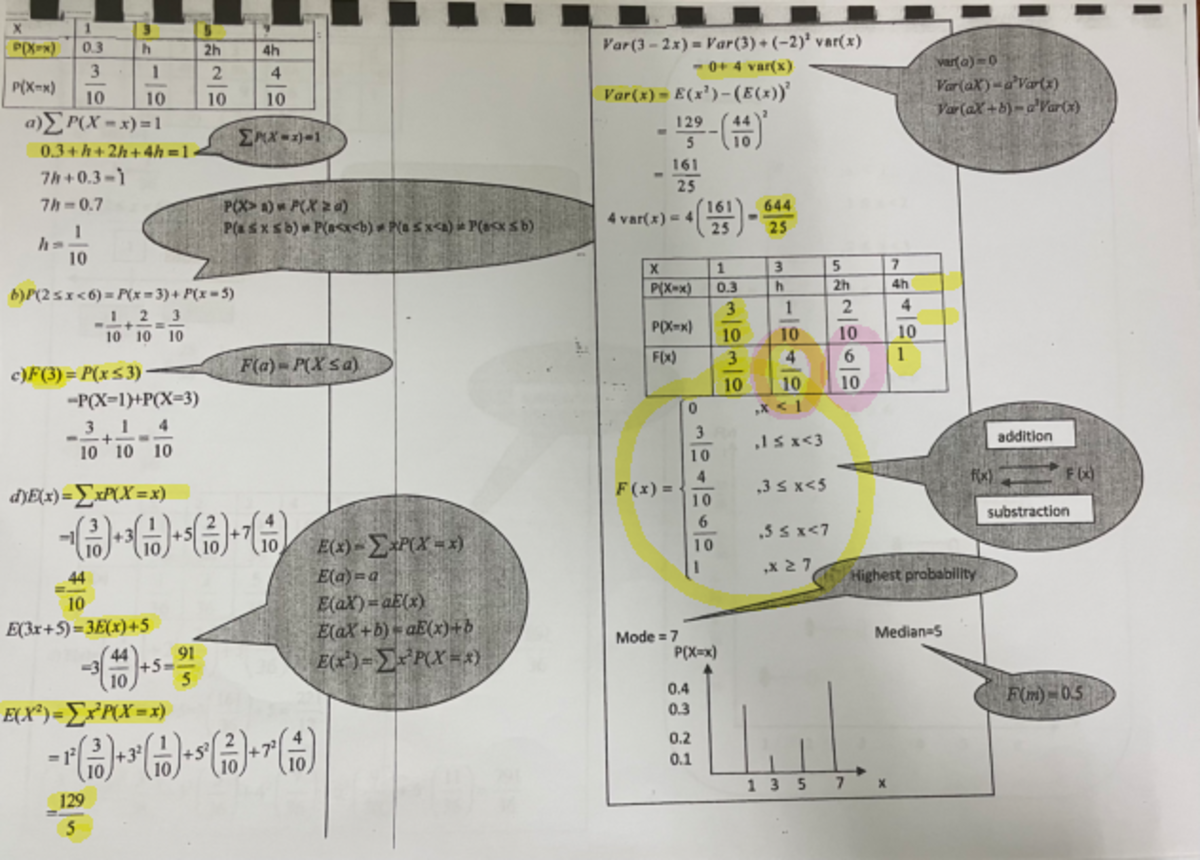 X 1 3 5 9
P(X=x) 0.3 h 2h 4h
P(X=x) 3/10 1/10 2/10 4/10
a)∑P(X=x)=1
∑P(X=x)=1
0.3+h+2h+4h=1
7h+0.3=1
7h=0.7
h=1/10
P(X> a) ≠ P(X ≥ a)
P(a ≤ x ≤ b) ≠ P(a<x<b) ≠ P(a ≤ x<a) ≠ P(a<x ≤ b)
b)P(2≤x<6)=P(x=3)+P(x=5)
=1/10+2/10=3/10
c)F(3)=P(x≤3)
F(a)=P(X≤a)
=P(X=1)+P(X=3)
=3/10+1/10=4/10
d)E(x)=∑xP(X=x)
=1(3/10)+3(1/10)+5(2/10)+7(4/10)
=44/10
E(3x+5)=3E(x)+5
=3(44/10)+5=91/5
E(X²)=∑x²P(X=x)
=1²(3/10)+3²(1/10)+5²(2/10)+7²(4/10)
=129/5
E(x)=∑xP(X=x)
E(a)=a
E(aX)=aE(x)
E(aX+b)=aE(x)+b
E(x²)=∑x²P(X=x)
Var(3-2x)=Var(3)+(-2)² var(x)
=0+ 4 var(x)
var(a)=0
Var(aX)=a²Var(x)
Var(aX+b)=a²Var(x)
Var(x)=E(x²)-(E(x))²
=129/5-(44/10)²
=161/25
4 var(x)=4(161/25)=644/25
X 1 3 5 7
P(X=x) 0.3 h 2h 4h
P(X=x) 3/10 1/10 2/10 4/10
F(x) 3/10 4/10 6/10 1
F(x)=
0 ,x < 1
3/10 ,1 ≤ x<3
4/10 ,3 ≤ x<5
6/10 ,5 ≤ x<7
1 ,x ≥ 7
addition
f(x) F (x)
substraction
Highest probability
Mode = 7
Median=5
F(m)=0.5
P(X=x)
0.4
0.3
0.2
0.1
1 3 5 7 x